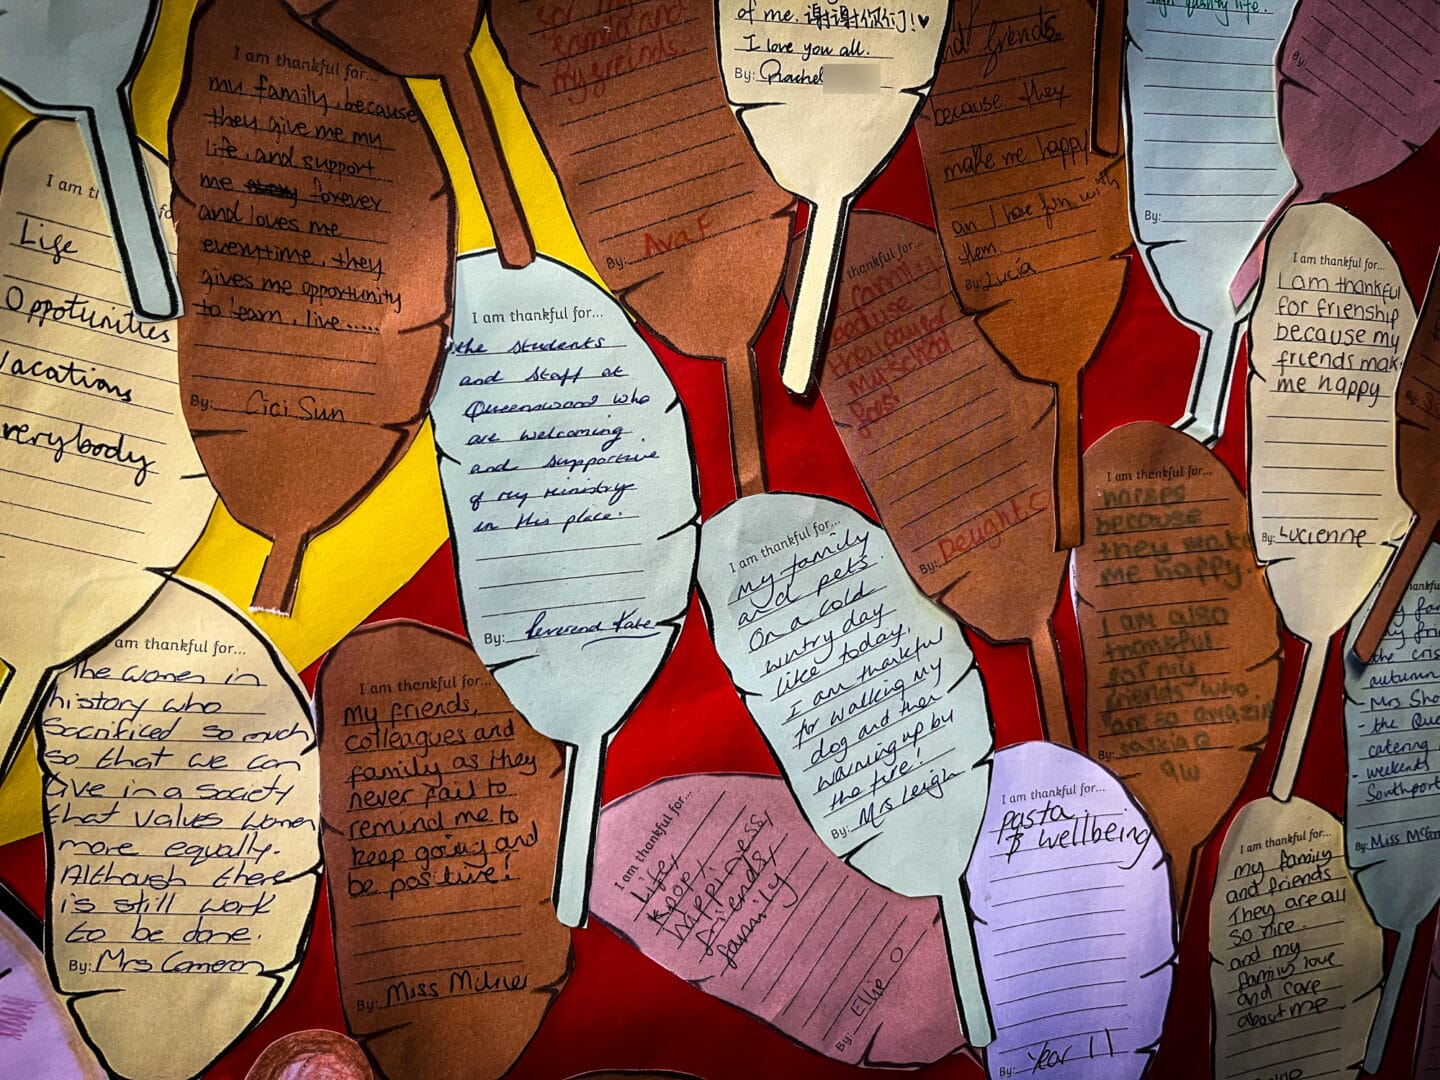 I am thankful for...
my family, because
they give me my
life, and support
me forever
and loves me
everytime, they
gives me opportunity
to learn, live.....
By: Cici Sun
my friends
By: Ava F
of me. 谢谢你们!♥
I love you all.
By: Rachel
and friends.
because they
make me happy
an I have fun with
them
By: Lucía
high quality life.
By:
I am
Life
Oppotunities
vacations
everybody
I am thankful for...
the students
and staff at
Queenswood who
are welcoming
and supportive
of my ministry
in this place.
By: Reverend Kate
thankful for...
family
because
they
my school
By:
I am thankful for...
I am thankful
for frienship
because my
friends make
me happy
By: Lucienne
I am thankful for...
my family
and pets.
On a cold
wintry day
like today,
I am thankful
for walking my
dog and then
warming up by
the fire!
By: Mrs Leigh
I am thankful for...
horses
because
they make
me happy.
I am also
thankful
for my
friends who
are so amazing
By: Saskia
am thankful for...
The women in
history who
sacrificed so much
so that we can
live in a society
that values women
more equally.
Although there
is still work
to be done.
By: Mrs Cameron
I am thankful for...
my friends,
colleagues and
family as they
never fail to
remind me to
keep going and
be positive!
By: Miss Milner
I am thankful for...
Life,
kpop,
happiness,
friends,
family
By: Ellie O
I am thankful for...
pasta
& wellbeing
By: Year 11
I am thankful for...
my family
and friends
They are all
so nice.
and my
family love
and care
about me
thankful
the
autumn
- Mrs
- the
catering
- weekends
By: Miss